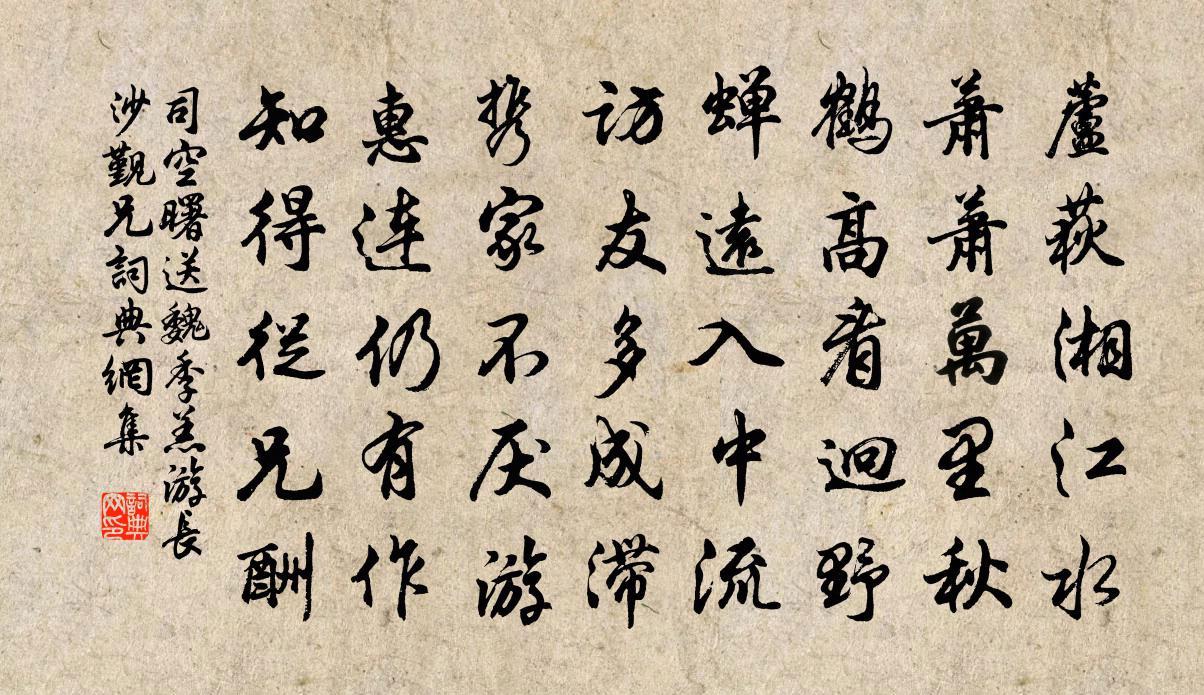 蘆荻湘江水
蕭蕭萬里秋
鶴高看逈野
蟬遠入中流
訪友多成滯
携家不厌游
惠連仍有作
知得從兄酬
司空曙送魏季羔游長
沙觀兄詞典網集
詞典网印